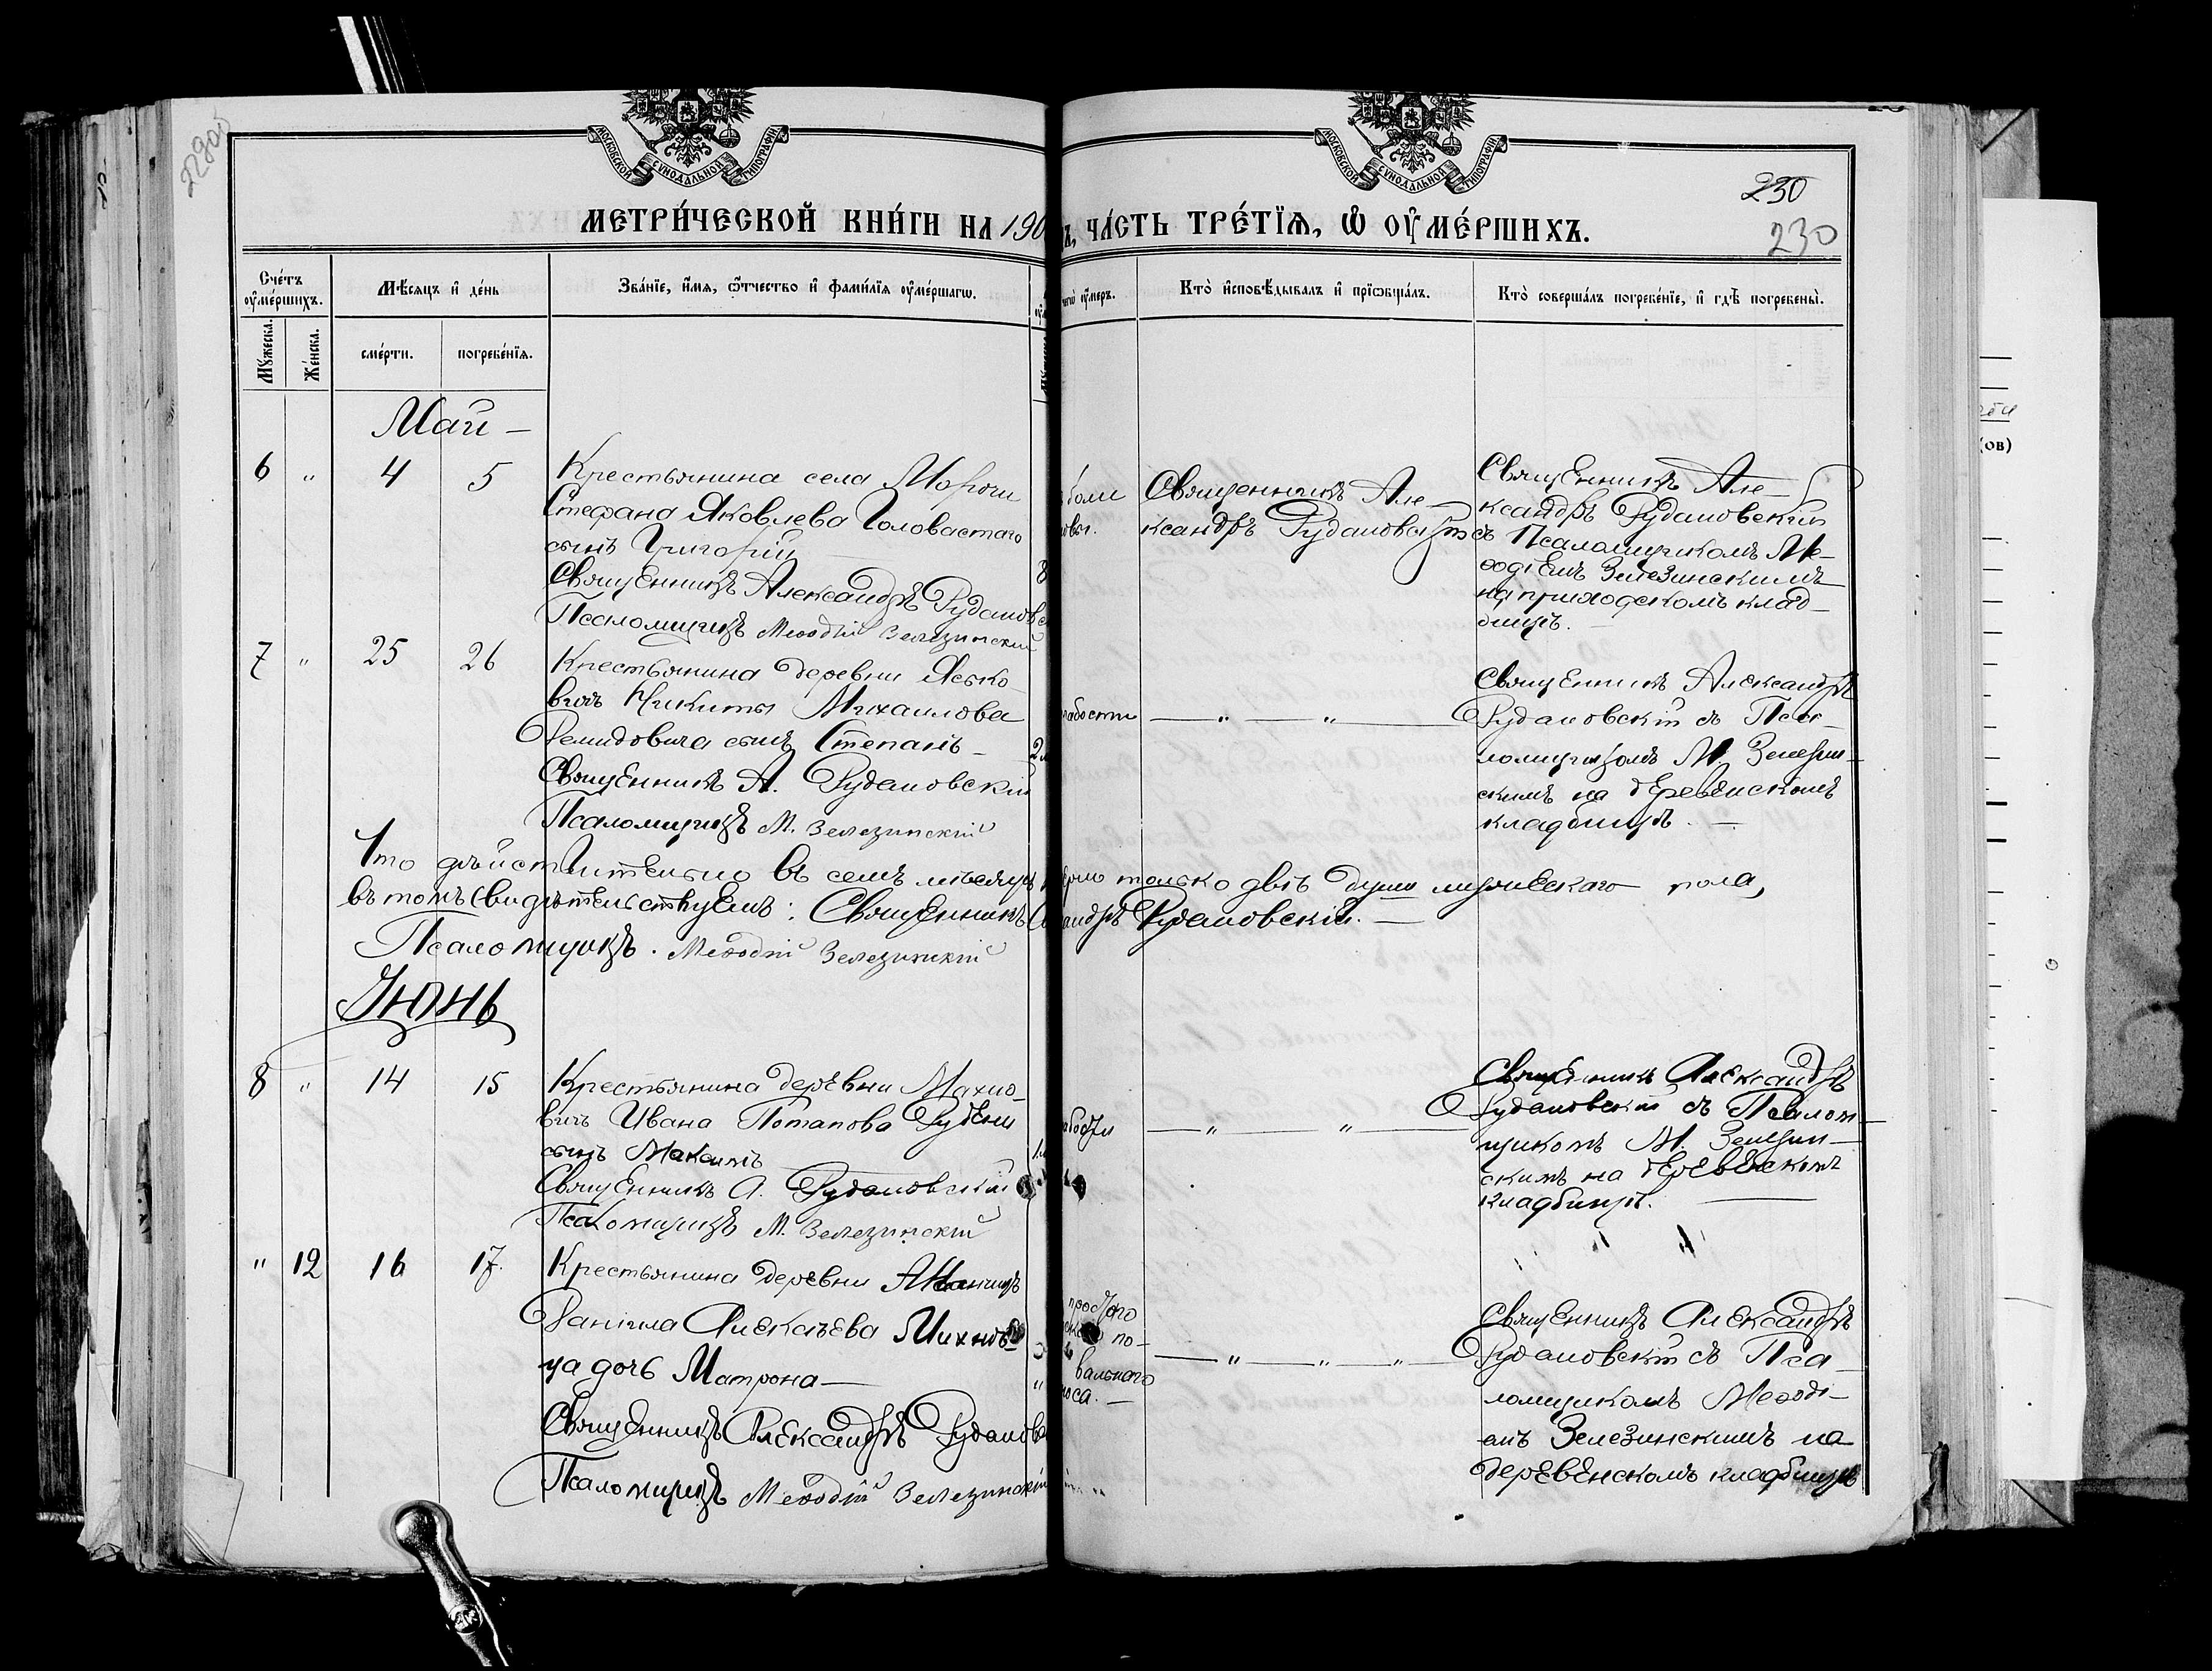 229об
МОСКОВСКОЙ СѴНОДАЛЬНОЙ ТИПОГРАФІИ
МОСКОВСКОЙ СѴНОДАЛЬНОЙ ТИПОГРАФІИ
230
230
МЕТРИ́ЧЕСКОЙ КНИ́ГИ НА 190
ЧА́СТЬ ТРЕ́ТІѦ, Ѡ ОУ҆МЕ́РШИХЪ.
Сче́тъ оу҆ме́ршихъ.
Мѣ́сяцъ и҆ де́нь
Зва́нїе, и҆́мя, ѻ҆́тчество и҆ фами́лїя оу҆ме́ршагѡ.
оу҆́меръ.
Кто̀ и҆сповѣ́дывалъ и҆ прїѡбща́лъ.
Кто̀ соверша́лъ погребе́нїе, и҆ гдѣ̀ погребены̀.
Мꙋ́жеска.
Же́нска.
сме́рти.
погребе́нїя.
Май —
6 „ 4 5
Крестьянина села Морочи
Стефана Яковлева Головастаго
сынъ Григорій
Священникъ Александръ Рудановс
Псаломщикъ Меѳодій Зелезинскій
боли
Священникъ Але-
ксандръ Рудановскій
Священникъ Але-
ксандръ Рудановскій
съ Псаломщикомъ Ме-
ѳодіемъ Зелезинскимъ
на приходскомъ клад-
бищѣ.
7 „ 25 26
Крестьянина деревни Ясько-
вичъ Никиты Михаилова
Демидовича сынъ Степанъ —
Священникъ А. Рудановскій
Псаломщикъ М. Зелезинскій
абости
— „ — „ —
Священникъ Александръ
Рудановскій съ Пса-
ломщикомъ М. Зелезин-
скимъ на деревенскомъ
кладбищѣ. —
Что дѣйствительно въ семъ мѣсяцѣ
ерло только двѣ души мужескаго пола,
въ томъ свидѣтельствуемъ: Священникъ
андръ Рудановскій. —
Псаломщикъ. Меѳодій Зелезинскій
Іюнь
8 „ 14 15
Крестьянина деревни Махно-
вичъ Ивана Потапова Рудени
сынъ Максимъ
Священникъ А. Рудановскій
Псаломщикъ М. Зелезинскій
абости
— „ — „ —
Священникъ Александръ
Рудановскій съ Псалом-
щикомъ М. Зелезин-
скимъ на деревенскомъ
кладбищѣ. —
„ 12 16 17.
Крестьянина деревни
Даніила Алексѣева
ца дочь Матрона —
Священникъ Александръ Рудановс
Псаломщикъ Меѳодій Зелезинскій
простого
по-
вального
носа. —
— „ — „ — „ —
Священникъ Александръ
Рудановскій съ Пса-
ломщикомъ Меѳоді-
емъ Зелезинскимъ на
деревенскомъ кладбищѣ
(ов)